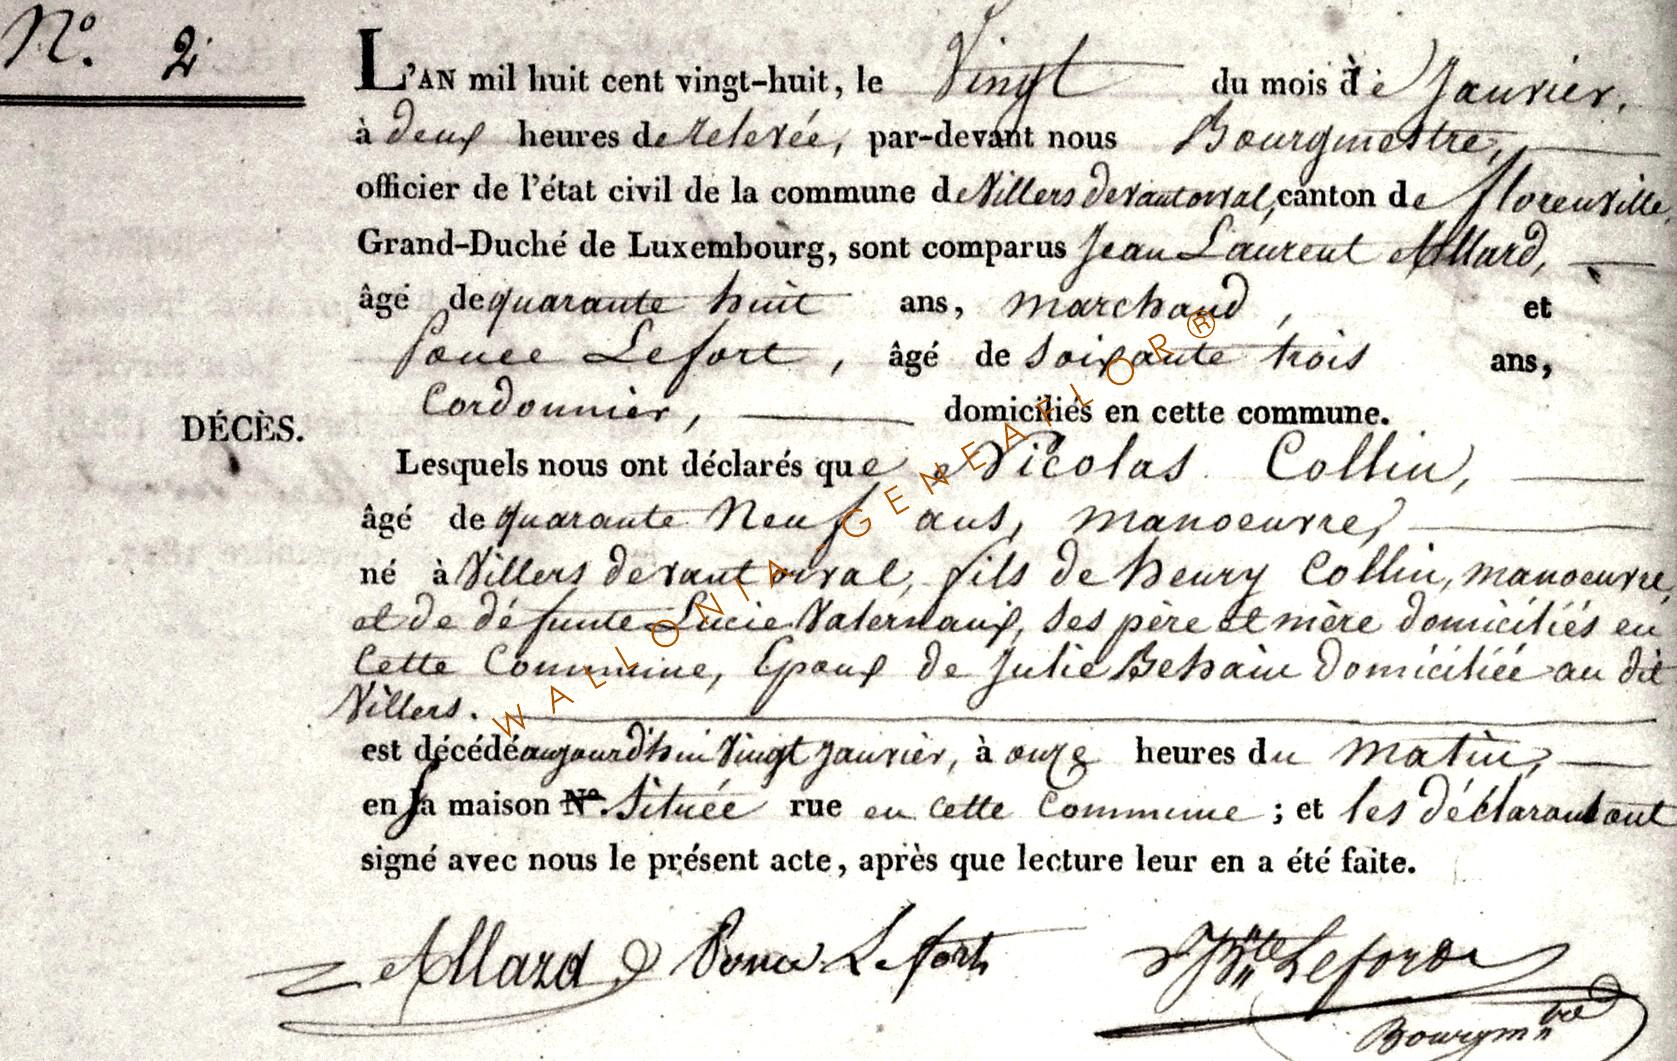 N.º 2
L'AN mil huit cent vingt-huit, le Vingt du mois de Janvier,
à deux heures de relevée, par-devant nous Bourgmestre,
officier de l'état civil de la commune de Villers devant orval, canton de florenville,
Grand-Duché de Luxembourg, sont comparus Jean Laurent Allard,
âgé de quarante huit ans, marchand, et
Ponce Lefort, âgé de soixante trois ans,
Cordonnier, domiciliés en cette commune.
DÉCÈS.
Lesquels nous ont déclarés que Nicolas Collin,
âgé de quarante Neuf ans, manoeuvre,
né à Villers devant orval, fils de henry Collin, manoeuvre,
et de défunte Lucie Valernaux, ses père et mère domiciliés en
Cette Commune, Epoux de Julie Behain Domiciliée au dit
Villers.
est décédé aujourd'hui Vingt Janvier, à onze heures du matin,
en sa maison Nº. Située rue en cette Commune ; et les déclarants ont
signé avec nous le présent acte, après que lecture leur en a été faite.
Allard Ponce Lefort JBte Lefort
Bourgmtre
WALLONIA-GENEAFLOR®